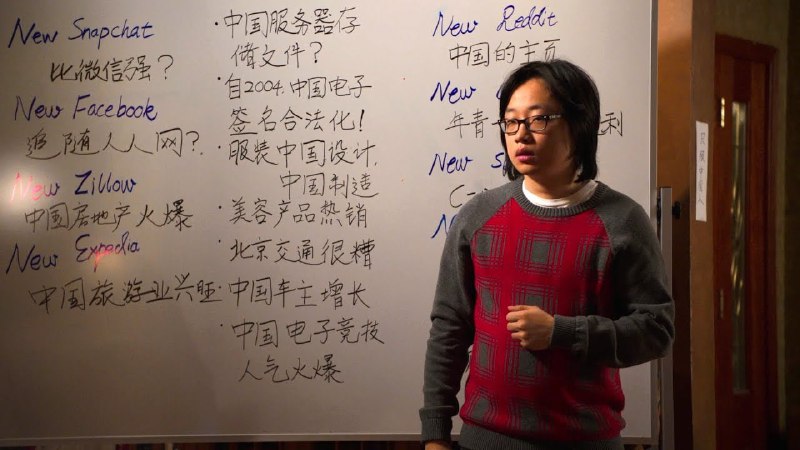 New Snapchat
比微信强？
New Facebook
追随人人网？
New Zillow
中国房地产火爆
New Expedia
中国旅游业兴旺
·中国服务器存
储文件？
·自2004.中国电子
签名合法化！
·服装中国设计,
中国制造
·美容产品热销
·北京交通很糟
·中国车主增长
·中国电子竞技
人气火爆
New Reddit
中国的主页
New
年青 利
New